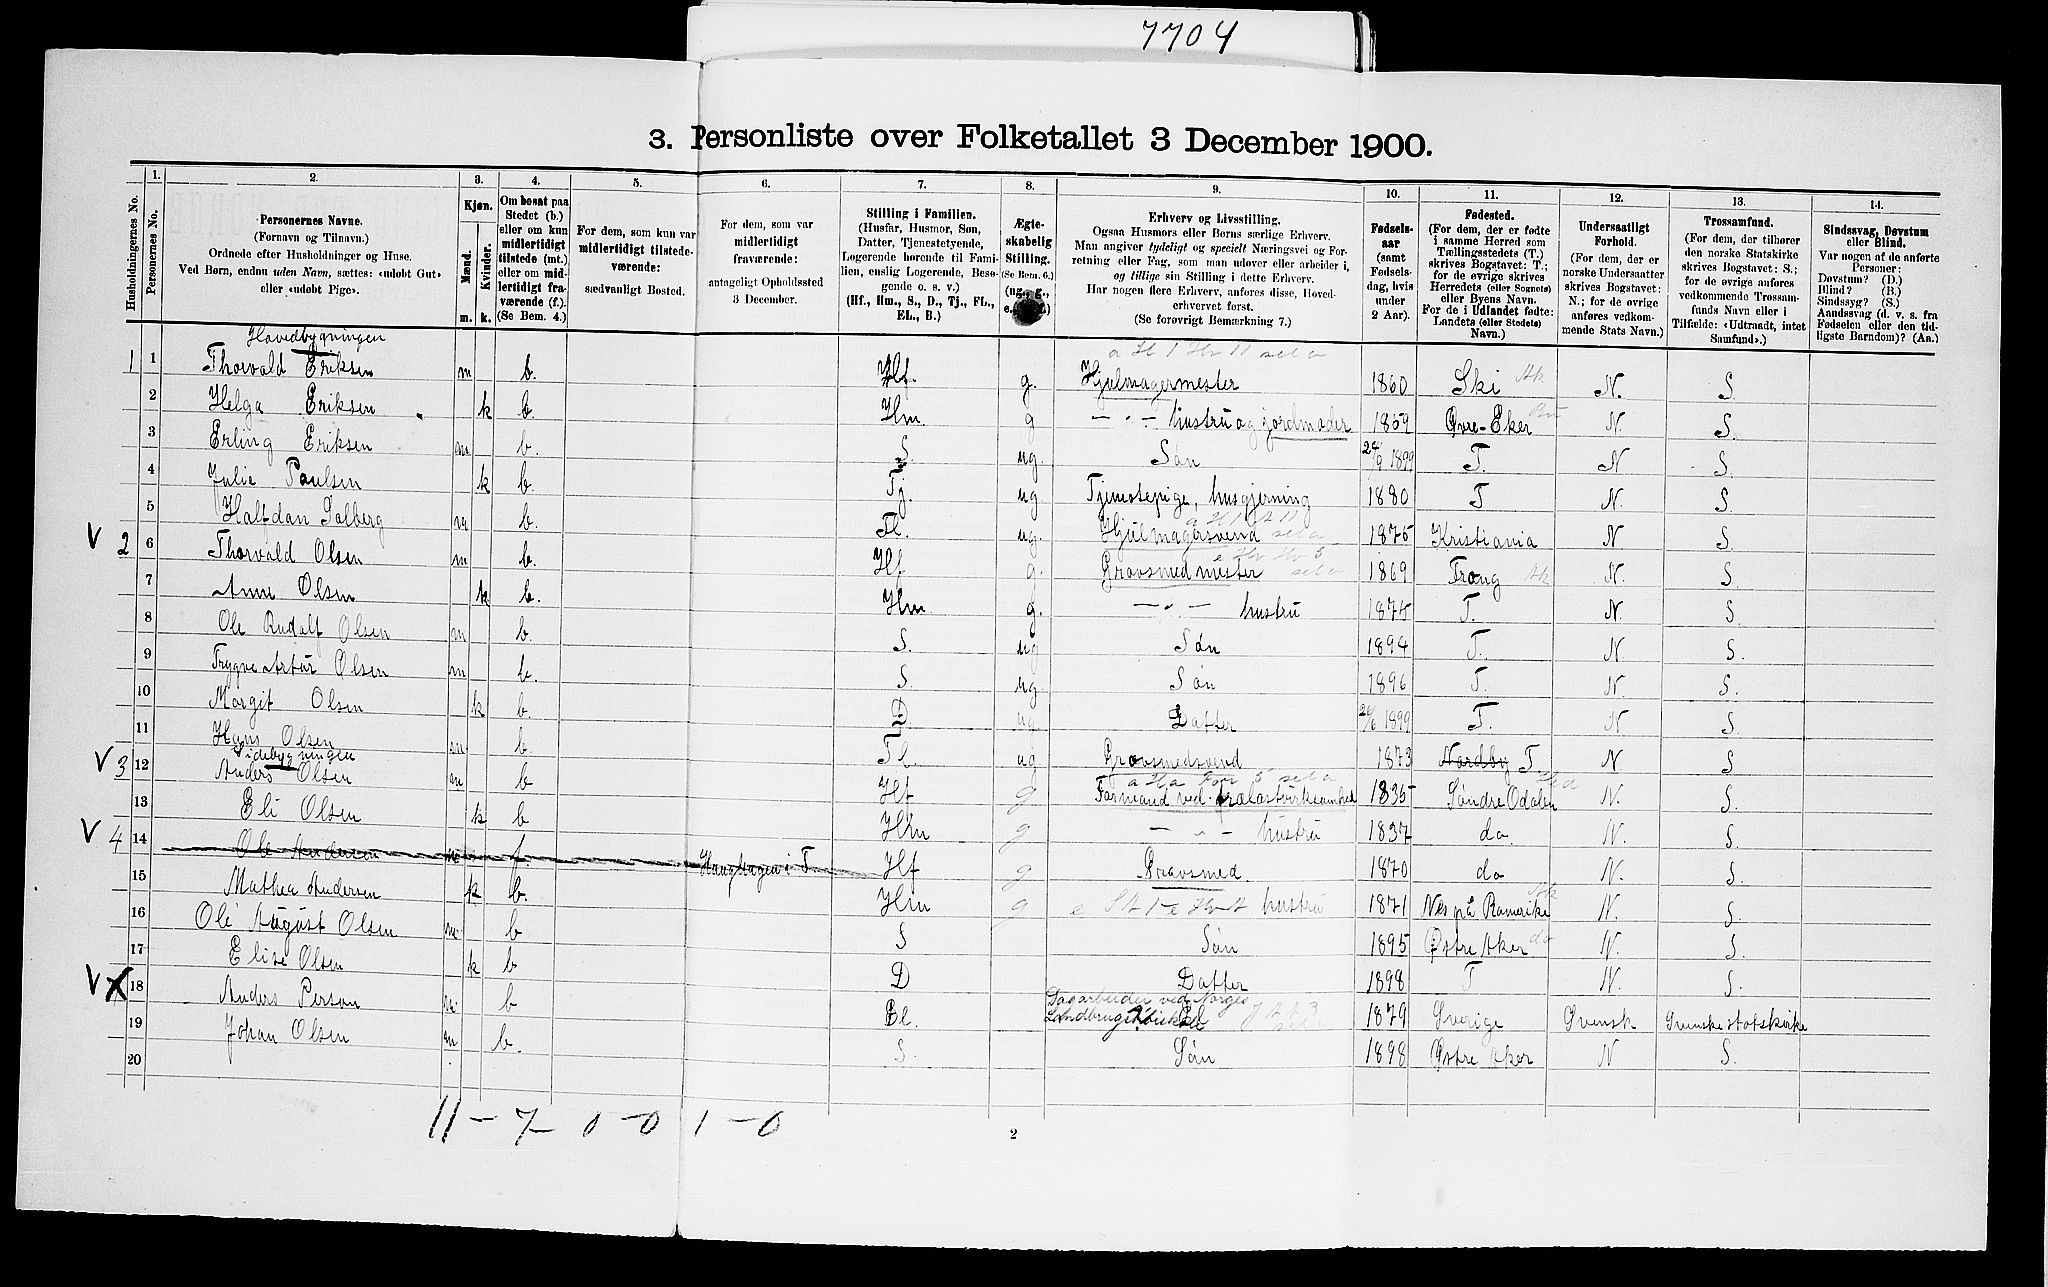 7704
3. Personliste over Folketallet 3 December 1900.
Husholdningernes No.
1. Personernes No.
2. Personernes Navne. (Fornavn og Tilnavn.) Ordnede efter Husholdninger og Huse. Ved Børn, endnu uden Navn, sættes: «udøbt Gut» eller «udøbt Pige».
3. Kjøn. Mænd. m. Kvinder. k.
4. Om bosat paa Stedet (b.) eller om kun midlertidigt tilstede (mt.) eller om midlertidigt fraværende (f.) (Se Bem. 4.)
5. For dem, som kun var midlertidigt tilstedeværende: sædvanligt Bosted.
6. For dem, som var midlertidigt fraværende: antageligt Opholdssted 3 December.
7. Stilling i Familien. (Husfar, Husmor, Søn, Datter, Tjenestetyende, Logerende hørende til Familien, enslig Logerende, Besøgende o. s. v.) (Hf., Hm., S., D., Tj., FL., EL., B.)
8. Ægteskabelig Stilling. (Se Bem. 6.) (ug., g.,
9. Erhverv og Livsstilling. Ogsaa Husmors eller Børns særlige Erhverv. Man angiver tydeligt og specielt Næringsvei og Forretning eller Fag, som man udøver eller arbeider i, og tillige sin Stilling i dette Erhverv. Har nogen flere Erhverv, anføres disse, Hovederhvervet først. (Se forøvrigt Bemærkning 7.)
10. Fødselsaar (samt Fødselsdag, hvis under 2 Aar).
11. Fødested. (For dem, der er fødte i samme Herred som Tællingsstedets (T.) skrives Bogstavet: T.; for de øvrige skrives Herredets (eller Sognets) eller Byens Navn. For de i Udlandet fødte: Landets (eller Stedets) Navn.)
12. Undersaatligt Forhold. (For dem, der er norske Undersaatter skrives Bogstavet: N.; for de øvrige anføres vedkommende Stats Navn.)
13. Trossamfund. (For dem, der tilhører den norske Statskirke skrives Bogstavet: S.; for de øvrige anføres vedkommende Trossamfunds Navn eller i Tilfælde: «Udtraadt, intet Samfund».)
14. Sindssvag, Døvstum eller Blind. Var nogen af de anførte Personer: Døvstum? (D.) Blind? (B.) Sindssyg? (S.) Aandssvag (d. v. s. fra Fødselen eller den tidligste Barndom)? (Aa.)
Hovedbygningen
1 1 Thorvald Eriksen m b. Hf. g. Hjulmagermester 1860 Ski Ak N. S.
2 Helga Eriksen k b. Hm. g — " — hustru og jordmoder 1859 Øvre-Eker Bu N. S.
3 Erling Eriksen m b. S. ug. Søn 24/9 1899 T. N S.
4 Julie Paulsen k b. Tj. ug Tjenestepige, husgjerning 1880 T N. S.
5 Halfdan Solberg m b. Fl. ug. Hjulmagersvend 1875 Kristiania N S.
V 2 6 Thorvald Olsen m b. Hf g. Grovsmedmester 1869 Frogn Ak N. S
7 Anne Olsen k b. Hm g. — " — hustru 1875 T. N. S
8 Ole Rudolf Olsen m b. S. ug Søn 1894 T. N S.
9 Trygve Artur Olsen m b. S ug Søn 1896 T. N. S.
10 Margit Olsen k b. D. ug Datter 26/6 1899 T. N S.
11 Hans Olsen m b. Fl. ug Grovsmedsvend 1873 Nordby T. N. S
Sidebygningen
V 3 12 Anders Olsen m b Hf g Formand ved trælastvirksomhed 1835 Søndre Odalen Hed N. S.
13 Eli Olsen k b Hm g — " — hustru 1837 do N. S.
V 4 14 Ole Andersen m f. Haughagen i T. Hf g Grovsmed. 1870 do N. S.
15 Mathea Andersen k b. Hm g hustru 1871 Nes på Romerike Ak N. S.
16 Ole August Olsen m b S Søn 1895 Østre Aker do N. S.
17 Elise Olsen k b D Datter 1898 T N. S.
V 18 Anders Person m. b El. Dagarbeider ved Norges Landbrugshøiskole 1879 Sverige Svensk Svenske statskirke
19 Johan Olsen m b. S. Søn 1898 Østre Aker N S.
20
11 – 7 0 – 0 1 – 0
2